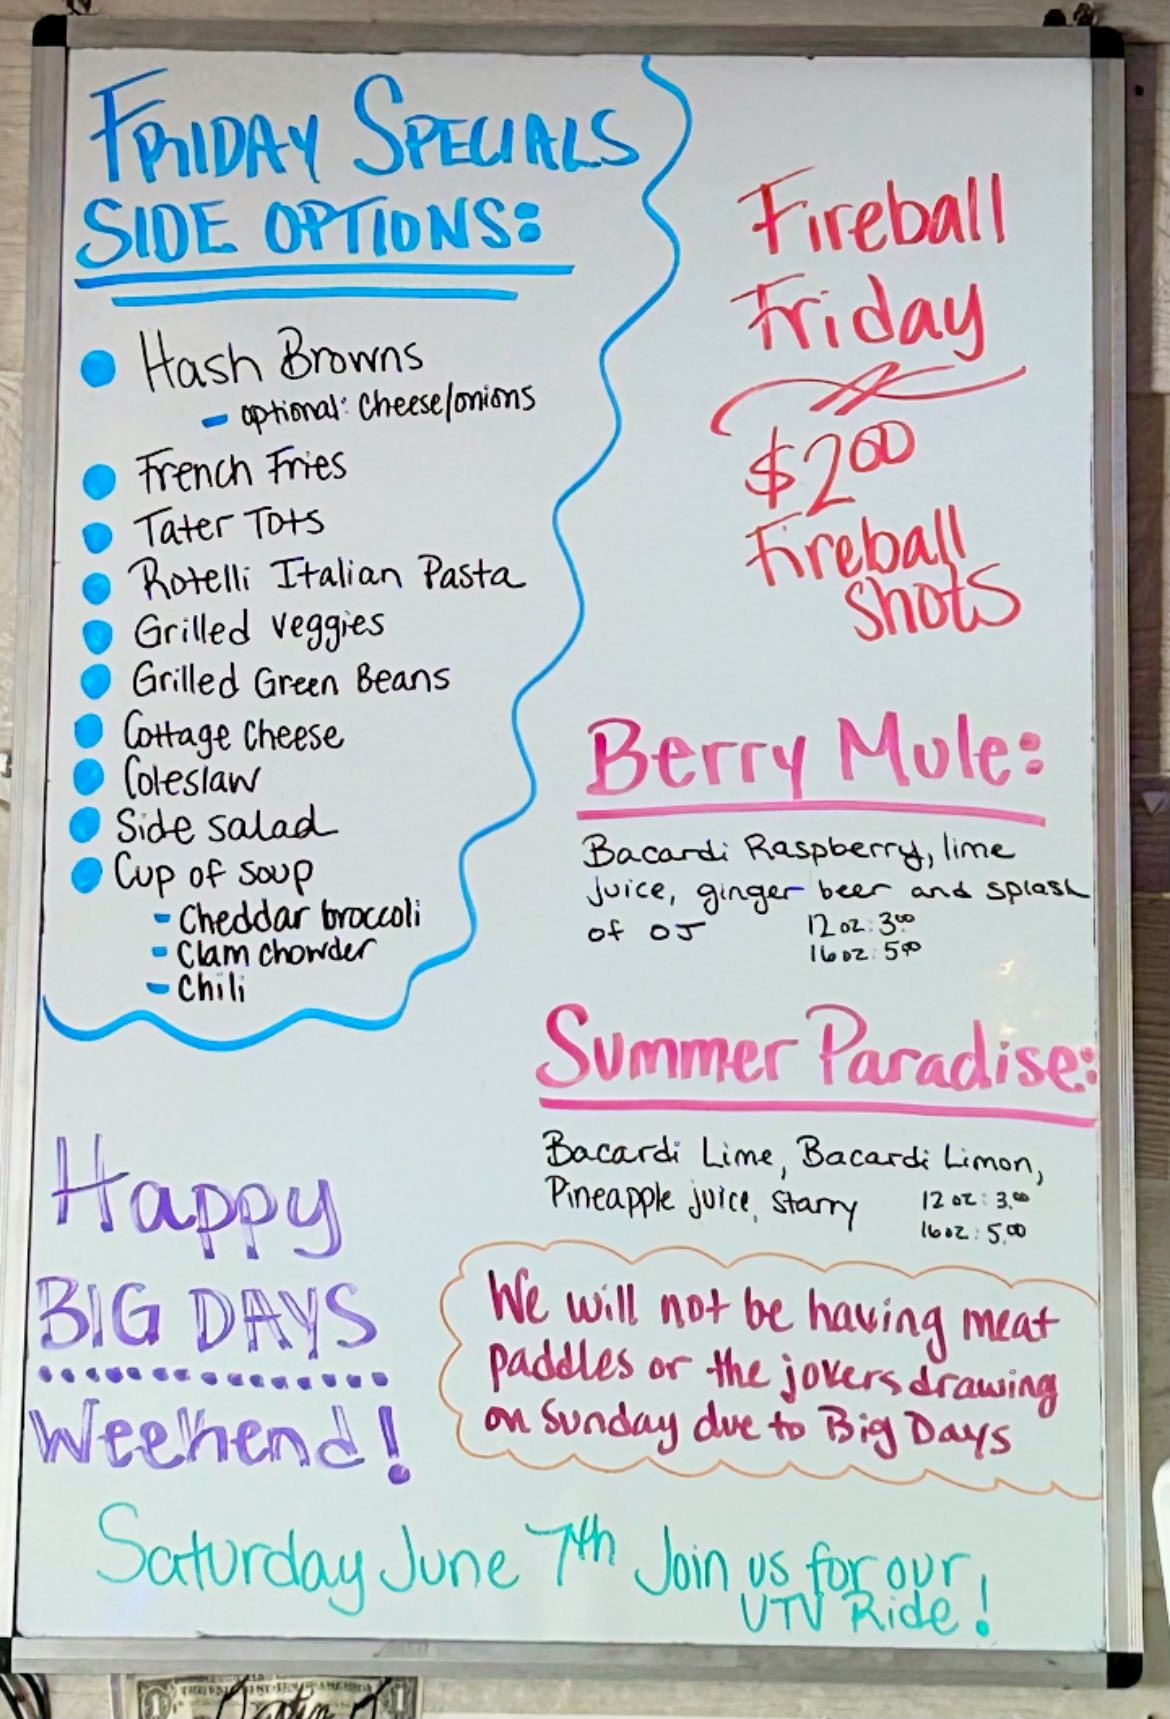 FRIDAY SPECIALS
SIDE OPTIONS:
Hash Browns
- optional: cheese/onions
French Fries
Tater Tots
Rotelli Italian Pasta
Grilled veggies
Grilled Green Beans
Cottage cheese
Coleslaw
Side salad
Cup of soup
- Cheddar broccoli
- Clam chowder
- Chili
Fireball
Friday
$2.00
Fireball
Shots
Berry Mule:
Bacardi Raspberry, lime
juice, ginger beer and splash
of OJ
12 oz: 3.00
16 oz: 5.00
Summer Paradise:
Bacardi Lime, Bacardi Limon,
Pineapple juice, Starry
12 oz: 3.00
16 oz: 5.00
Happy
BIG DAYS
Weekend!
We will not be having meat
paddles or the jokers drawing
on Sunday due to Big Days
Saturday June 7th Join us for our
UTV Ride!
1
1